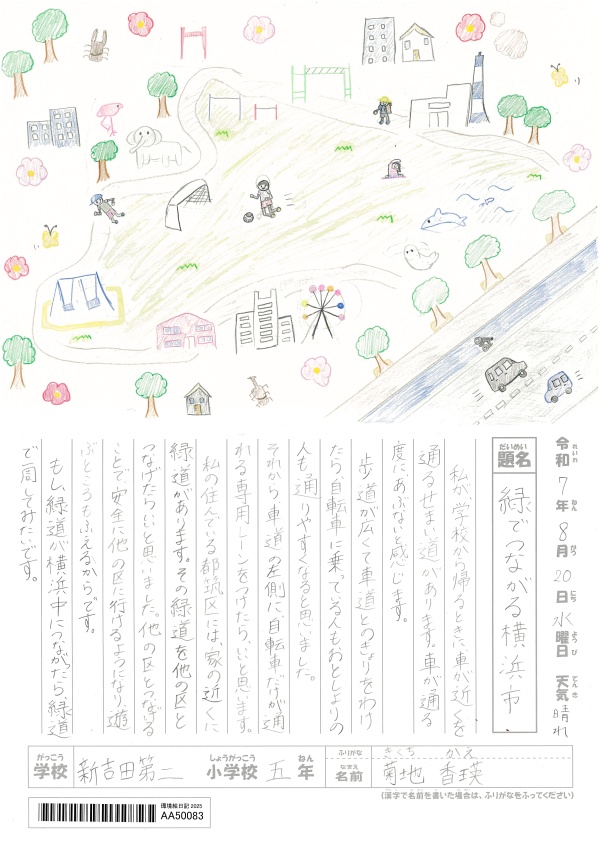 令和7年8月20日水曜日 天気 晴れ
れいわ ねん がつ にち ようび てんき
だいめい
題名
緑でつながる横浜市
私が学校から帰るときに車が近くを
通るせまい道があります。車が通る
度にあぶないと感じます。
歩道が広くて車道とのきょりをわけ
たら、自転車に乗っている人もおとしよりの
人も通りやすくなると思いました。
それから車道の左側に、自転車だけが通
れる専用レーンをつけたらいいと思います。
私の住んでいる都筑区には、家の近くに
緑道があります。その緑道を他の区と
つなげたらいいと思いました。他の区とつなげる
ことで安全に他の区に行けるようになり、遊
ぶところもふえるからです。
もし、緑道が横浜中につながったら、緑道
で一周してみたいです。
がっこう しょうがっこう ねん
学校 新吉田第二 小学校 五年
ふりがな きくち かえ
なまえ
名前 菊地 香瑛
(漢字で名前を書いた場合は、ふりがなをふってください)
環境絵日記 2025
AA50083